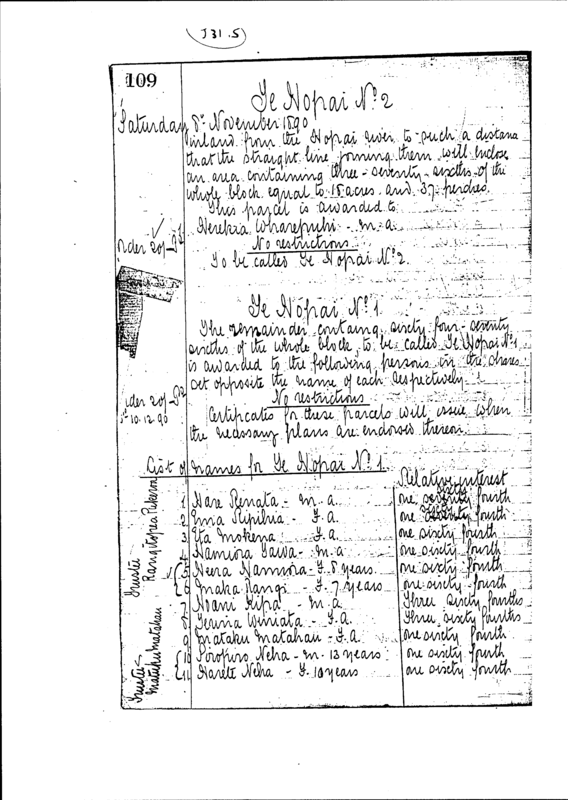 J31.5
109
Te Hopai No. 2
Saturday 8th November 1890
inland from the Hopai river to such a distance
that the straight line joining them will enclose
an area containing three-seventy-sixths of the
whole block equal to 18 acres and 37 perches.
This parcel is awarded to
Herekia Wharepuhi - m. a.
No restrictions
To be called Te Hopai No. 2.
Order 20/
Te Hopai No. 1
The remainder containg sixty four-seventy
sixths of the whole block, to be called Te Hopai No. 1
is awarded to the following persons in the shares
set opposite the name of each respectively.
No restrictions
Order 20/
10.12.90
Certificates for these parcels will issue when
the necessary plans are endorsed thereon.
List of names for Te Hopai No. 1.
Relative interest
1 Hare Renata - m. a. one sixty fourth
2 F. a. one sixty fourth
3 Ita Mokena F. a. one sixty fourth
4 Hamiora m. a one sixty fourth
5 Neera Hamiora - F. 8 years one sixty fourth
6 Maka Rangi - F. 7 years one sixty fourth
7 Hoani Kipa - m a Three sixty fourths
8 Winiata - F. a Three sixty fourths
9 Mataku Matahau - F. a one sixty fourth
10 Neha - m. 13 years one sixty fourth
11 Harete Neha - F. 10 years one sixty fourth
Trustee
Trustee
Mataku Matahau